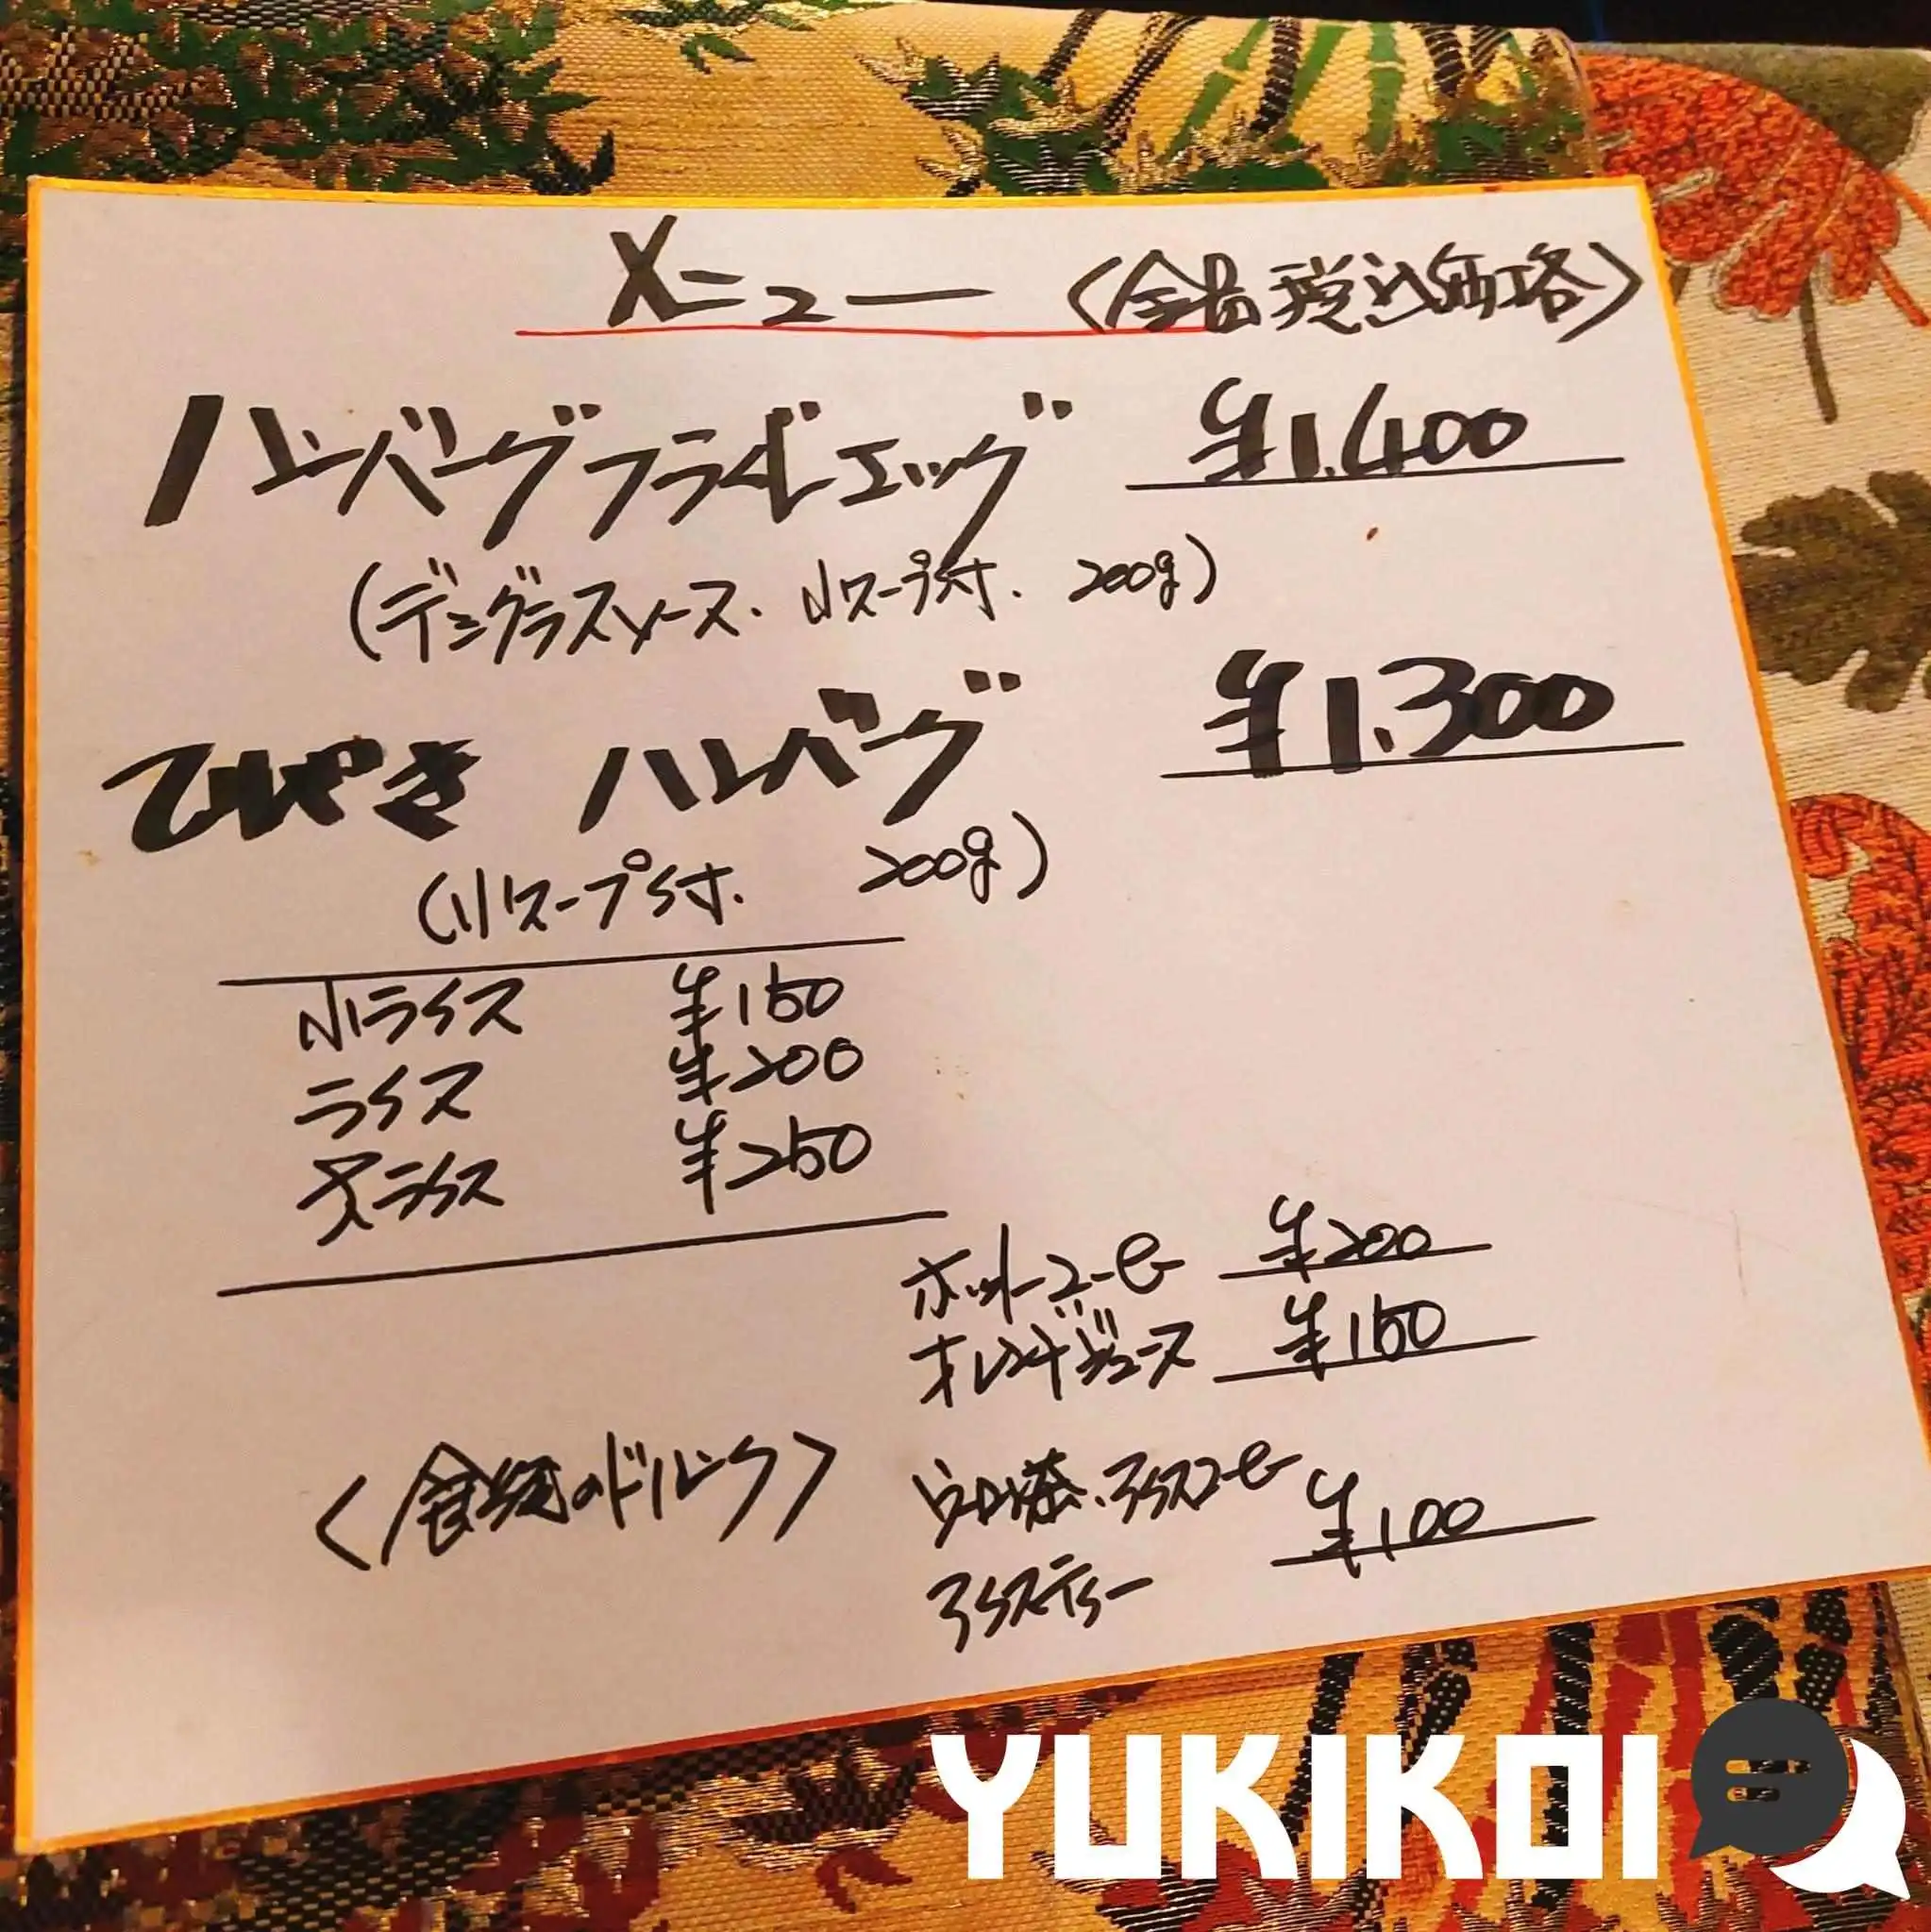 メニュー 〈全品税込価格〉
ハンバーグフライドエッグ ¥1.400
(デミグラスソース. 小スープ付. 200g)
てりやき ハンバーグ ¥1.300
(小スープ付. 200g)
小ライス ¥150
ライス ¥200
大ライス ¥250
ホットコーヒー ¥200
オレンジジュース ¥150
〈食後のドリンク〉
ウーロン茶.アイスコーヒー
アイスティー ¥100
YUKIKOI